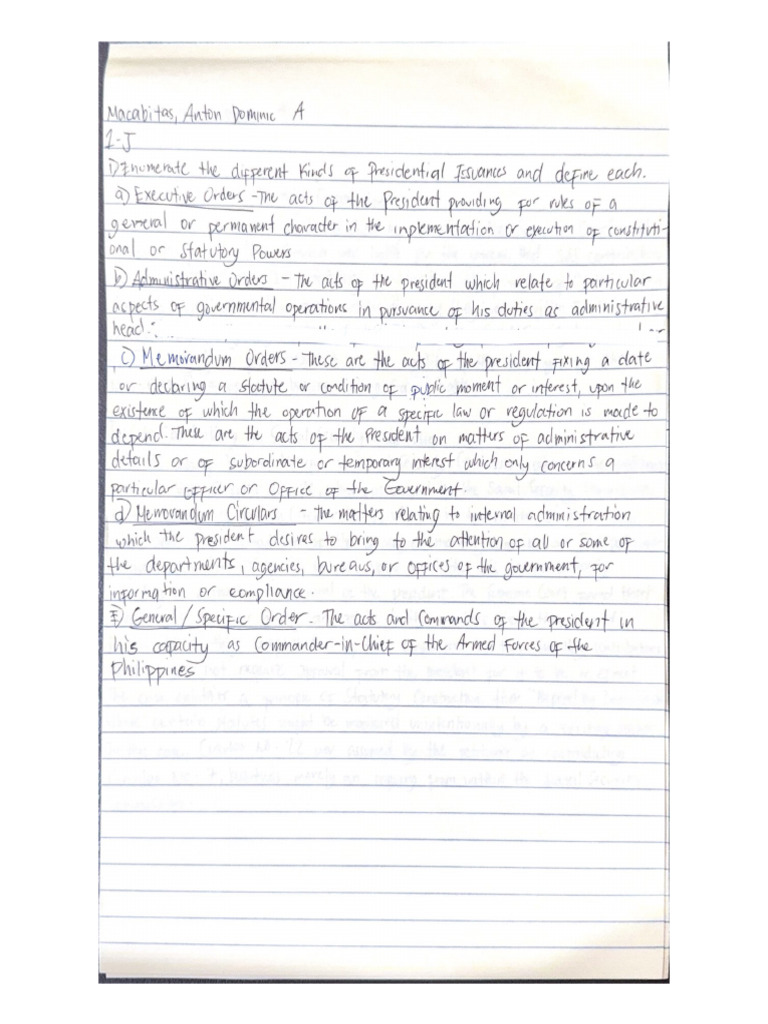 Macabitas, Anton Dominic A
1-J
1) Enumerate the different kinds of Presidential Issuances and define each.
a) Executive Orders - The acts of the President providing for rules of a
general or permanent character in the implementation or execution of constituti-
onal or statutory Powers
b) Administrative Orders - The acts of the president which relate to particular
aspects of governmental operations in pursuance of his duties as administrative
head.
c) Memorandum Orders - These are the acts of the president fixing a date
or declaring a statute or condition of public moment or interest, upon the
existence of which the operation of a specific law or regulation is made to
depend. These are the acts of the President on matters of administrative
details or of subordinate or temporary interest which only concerns a
particular officer or Office of the Government.
d) Memorandum Circulars - the matters relating to internal administration
which the president desires to bring to the attention of all or some of
the departments, agencies, bureaus, or offices of the government, for
information or compliance.
General / Specific Order. The acts and Commands of the president in
his capacity as Commander-in-Chief of the Armed Forces of the
Philippines